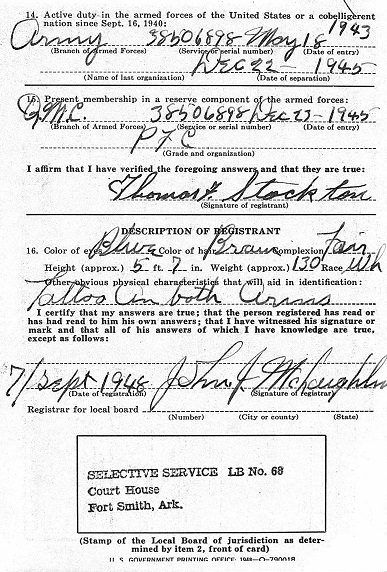 14. Active duty in the armed forces of the United States or a cobelligerent
nation since Sept. 16, 1940:
Army 38506898 May 18 1943
(Branch of Armed Forces) (Service or serial number) (Date of entry)
Dec 22 - 1945
(Name of last organization) (Date of separation)
15. Present membership in a reserve component of the armed forces:
Q.M.C. 38506898 Dec 23-1945
(Branch of Armed Forces) (Service or serial number) (Date of entry)
PFC
(Grade and organization)
I affirm that I have verified the foregoing answers and that they are true:
Thomas F Stockton
(Signature of registrant)
DESCRIPTION OF REGISTRANT
16. Color of eyes Blue Color of hair Brown Complexion Fair
Height (approx.) 5 ft. 7 in. Weight (approx.) 130 Race Wh
Other obvious physical characteristics that will aid in identification:
Tattoo on both Arms
I certify that my answers are true; that the person registered has read or
has had read to him his own answers; that I have witnessed his signature or
mark and that all of his answers of which I have knowledge are true,
except as follows:
7/Sept 1948 John J. McLaughlin
(Date of registration) (Signature of registrar)
Registrar for local board
(Number) (City or county) (State)
SELECTIVE SERVICE LB No. 68
Court House
Fort Smith, Ark.
(Stamp of the Local Board of jurisdiction as deter-
mined by item 2, front of card)
U. S. GOVERNMENT PRINTING OFFICE: 1948-O-790018